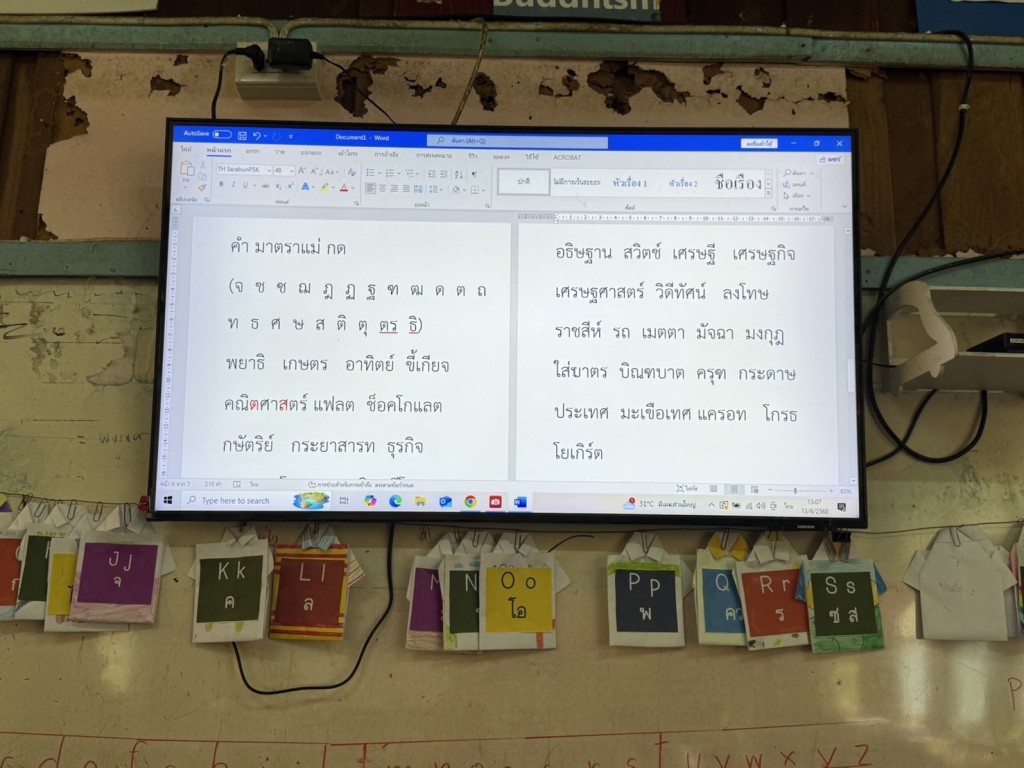 Buddhism
AutoSave
Document1 - Word
ค้นหา (Alt+Q)
ไฟล์ หน้าแรก แทรก วาด ออกแบบ เค้าโครง การอ้างอิง การส่งจดหมาย รีวิว มุมมอง วิธีใช้ ACROBAT
TH SarabunPSK 48
ปกติ ไม่มีการเว้นระยะห่าง หัวเรื่อง 1 หัวเรื่อง 2 ชื่อเรื่อง
คำ มาตราแม่ กด
(จ ช ซ ฌ ฎ ฏ ฐ ฑ ฒ ด ต ถ
ท ธ ศ ษ ส ติ ตุ ตร ธิ)
พยาธิ เกษตร อาทิตย์ ขี้เกียจ
คณิตศาสตร์ แฟลต ช็อคโกแลต
กษัตริย์ กระยาสารท ธุรกิจ
อธิษฐาน สวิตช์ เศรษฐี เศรษฐกิจ
เศรษฐศาสตร์ วิดีทัศน์ ลงโทษ
ราชสีห์ รถ เมตตา มัจฉา มงกุฎ
ใส่บาตร บิณฑบาต ครุฑ กระดาษ
ประเทศ มะเขือเทศ แครอท โกรธ
โยเกิร์ต
หน้า 6 จาก 7 210 คำ ไทย
Type here to search
31°C มีเมฆเป็นส่วนใหญ่
ไทย
13:07
13/6/2568
SAMSUNG
Jj
จ
Kk
ค
Ll
ล
M
N
Oo
โอ
Pp
พ
Q
คว
Rr
ร
Ss
ซ ส
t u v w x y z